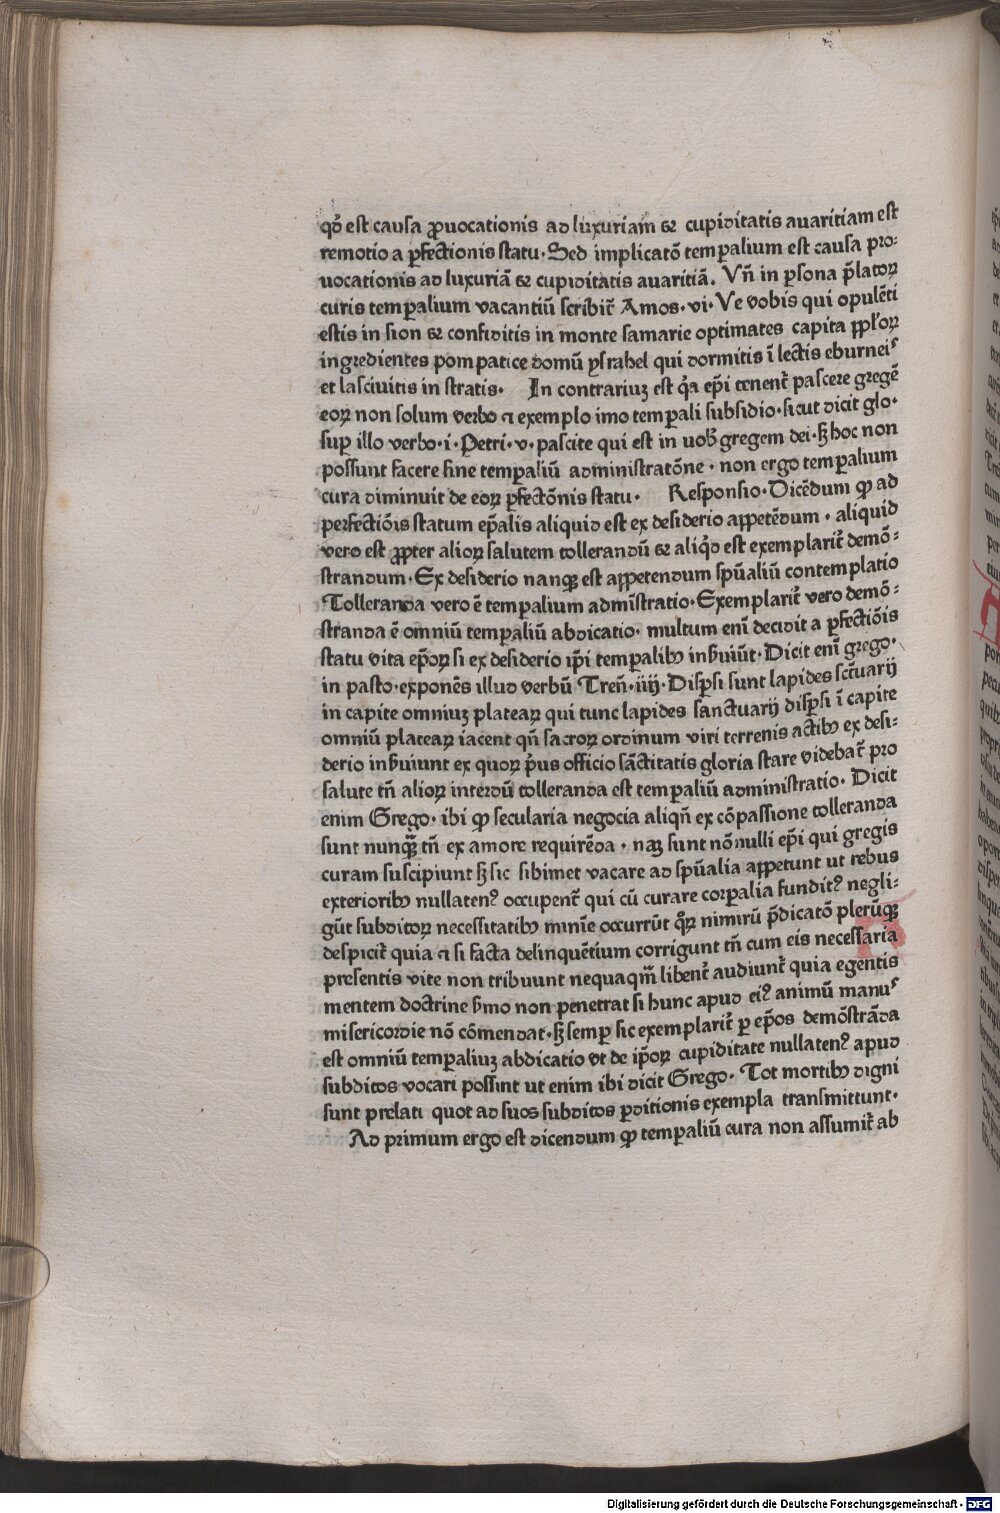 qđ est causa ꝓuocationis ad luxuriam ⁊ cupiditatis auaritiam est
remotio a ꝑfectionis statu. Sed implicatō temꝑalium est causa pro-
uocationis ad luxuriā ⁊ cupiditatis auaritiā. Vn̄ in ꝑsona p̄latoꝝ
curis temꝑalium vacantiū scribit᷑ Amos. vi. Ve vobis qui opulēti
estis in sion ⁊ confiditis in monte samarie optimates capita ppl'oꝝ
ingredientes pompatice domū ysrahel qui dormitis ī lectis eburneis
et lasciuitis in stratis. In contrariuꝫ est q̄a ep̄i tenent᷑ pascere gregē
eoꝝ non solum verbo ⁊ exemplo imo temꝑali subsidio. sicut dicit glo.
suꝑ illo verbo. i. Petri. v. pascite qui est in uob̄ gregem dei. sꝫ hoc non
possunt facere sine temꝑaliū administratōne. non ergo temꝑalium
cura diminuit de eoꝝ ꝑfectōnis statu. Responsio. Dicēdum ꝙ ad
perfectiōis statum ep̄alis aliquid est ex desiderio appetēdum. aliquid
vero est ꝓpter alioꝝ salutem tollerandū ⁊ aliq̄d est exemplarit᷑ demō-
strandum. Ex desiderio nanqꝫ est appetendum spūaliū contemplatio
Tolleranda vero ē temꝑalium admīstratio. Exemplarit᷑ vero demō-
stranda ē omniū temꝑaliū abdicatio. multum enī decidit a ꝑfectiōis
statu vita ep̄oꝝ si ex desiderio ip̄i temꝑalibꝫ inƀuiūt. Dicit enī grego.
in pasto. exponēs illud verbū Tren̄. iiij. Disꝑsi sunt lapides sct̄uarij
in capite omniuꝫ plateaꝝ qui tunc lapides sanctuarij disꝑsi ī capite
omniū plateaꝝ iacent qn̄ sacroꝝ ordinum viri terrenis actibꝫ ex desi-
derio inƀuiunt ex quoꝝ p̄us officio sāctitatis gloria stare videbat᷑ pro
salute tn̄ alioꝝ interdū tolleranda est temꝑaliū administratio. Dicit
enim Grego. ibi ꝙ secularia negocia aliqn̄ ex cōpassione tolleranda
sunt nunqꝫ̄ tn̄ ex amore requirēda. naꝫ sunt nōnulli ep̄i qui gregis
curam suscipiunt sꝫ sic sibimet vacare ad spūalia appetunt ut rebus
exterioribꝫ nullatenꝰ occupent᷑ qui cū curare corꝑalia funditꝰ negli-
gūt subditoꝝ necessitatibꝫ minīe occurrūt qr̄ nimirū p̄dicatō plerūqꝫ
despicit᷑ quia ⁊ si facta delinquētium corrigunt tn̄ cum eis necessaria
presentis vite non tribuunt nequaqm̄ libent᷑ audiunt᷑ quia egentis
mentem doctrine ƀmo non penetrat si hunc apud eiꝰ animū manus
misericordie nō cōmendat. sꝫ semꝑ sic exemplarit᷑ ꝑ ep̄os demōstrāda
est omniū temꝑaliuꝫ abdicatio vt de ip̄oꝝ cupiditate nullatenꝰ apud
subditos vocari possint ut enim ibi dicit Grego. Tot mortibꝫ digni
sunt prelati quot ad suos subditos ꝑditionis exempla transmittunt.
Ad primum ergo est dicendum ꝙ temꝑaliū cura non assumit᷑ ab
Digitalisierung gefördert durch die Deutsche Forschungsgemeinschaft - DFG